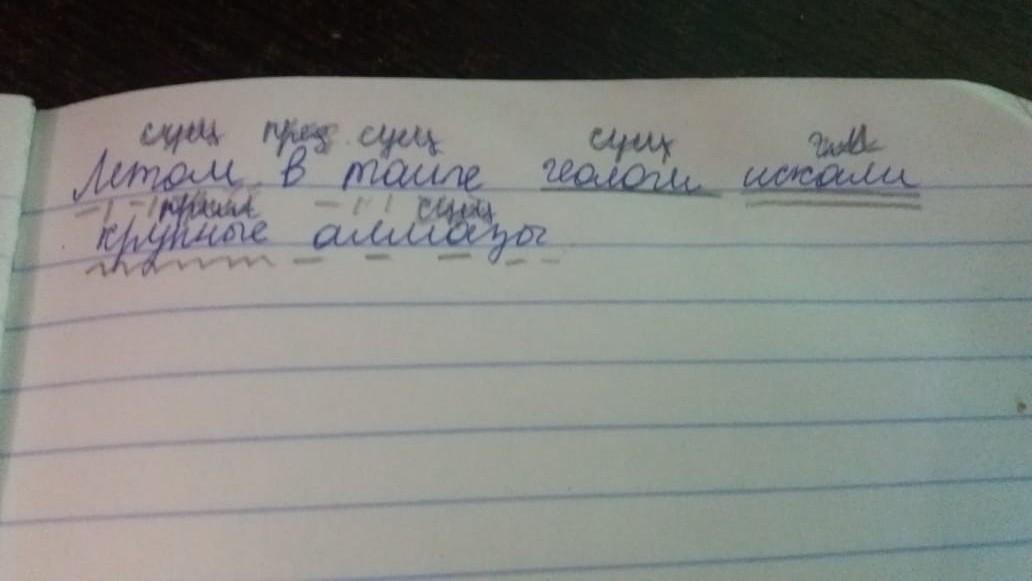 сущ предл сущ сущ глаг
Летом в тайге геологи искали
прилаг сущ
крупные алмазы